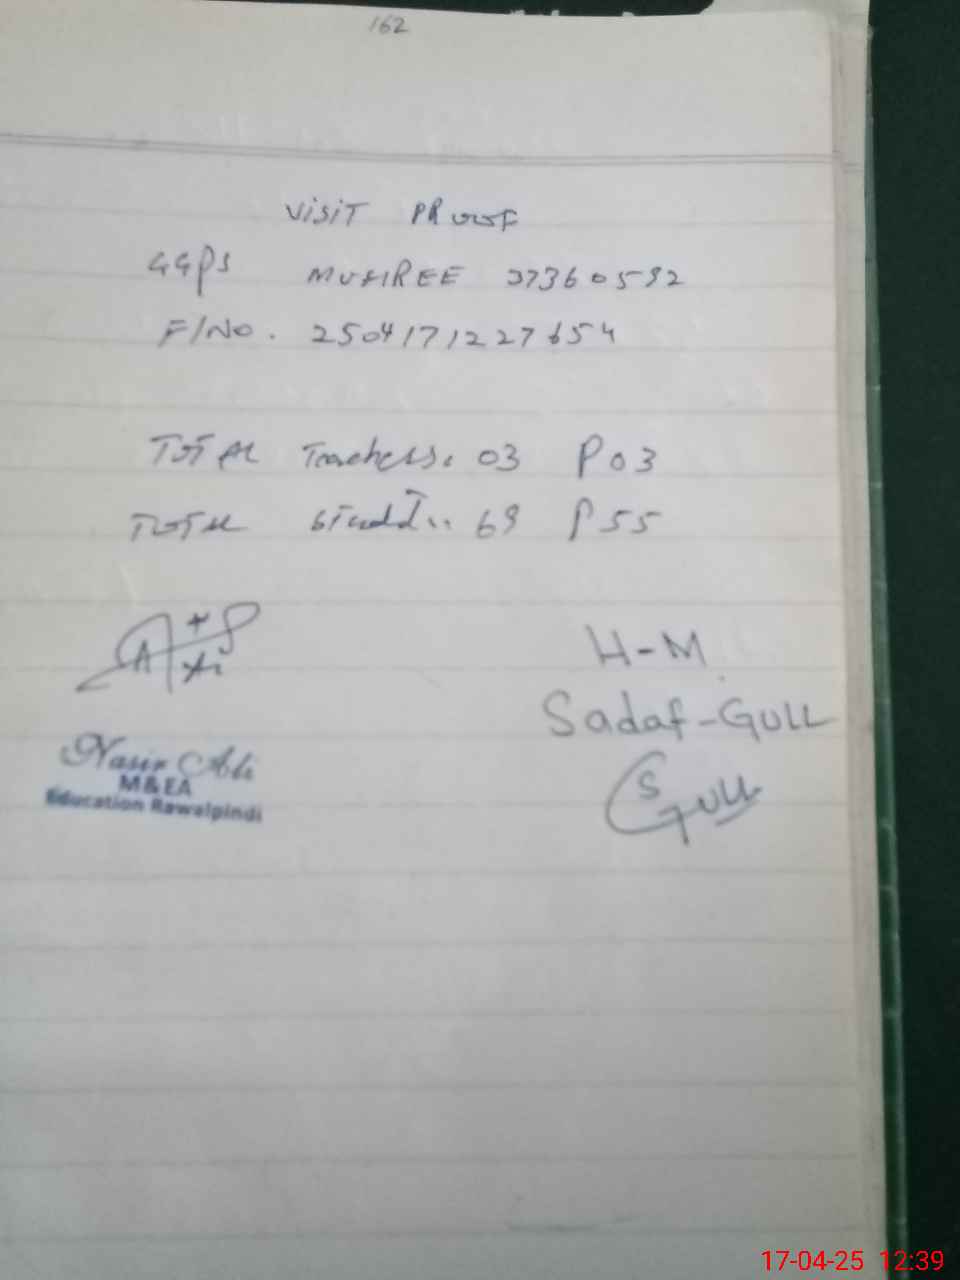 162
VISIT PROOF
GGPS MOHREE 37360592
F/NO. 2504171227654
TOTAL Teachers. 03 P 03
TOTAL Studd.. 69 P 55
H-M
Sadaf-GULL
S GULL
Nasir Ali
M&EA
Education Rawalpindi
17-04-25 12:39